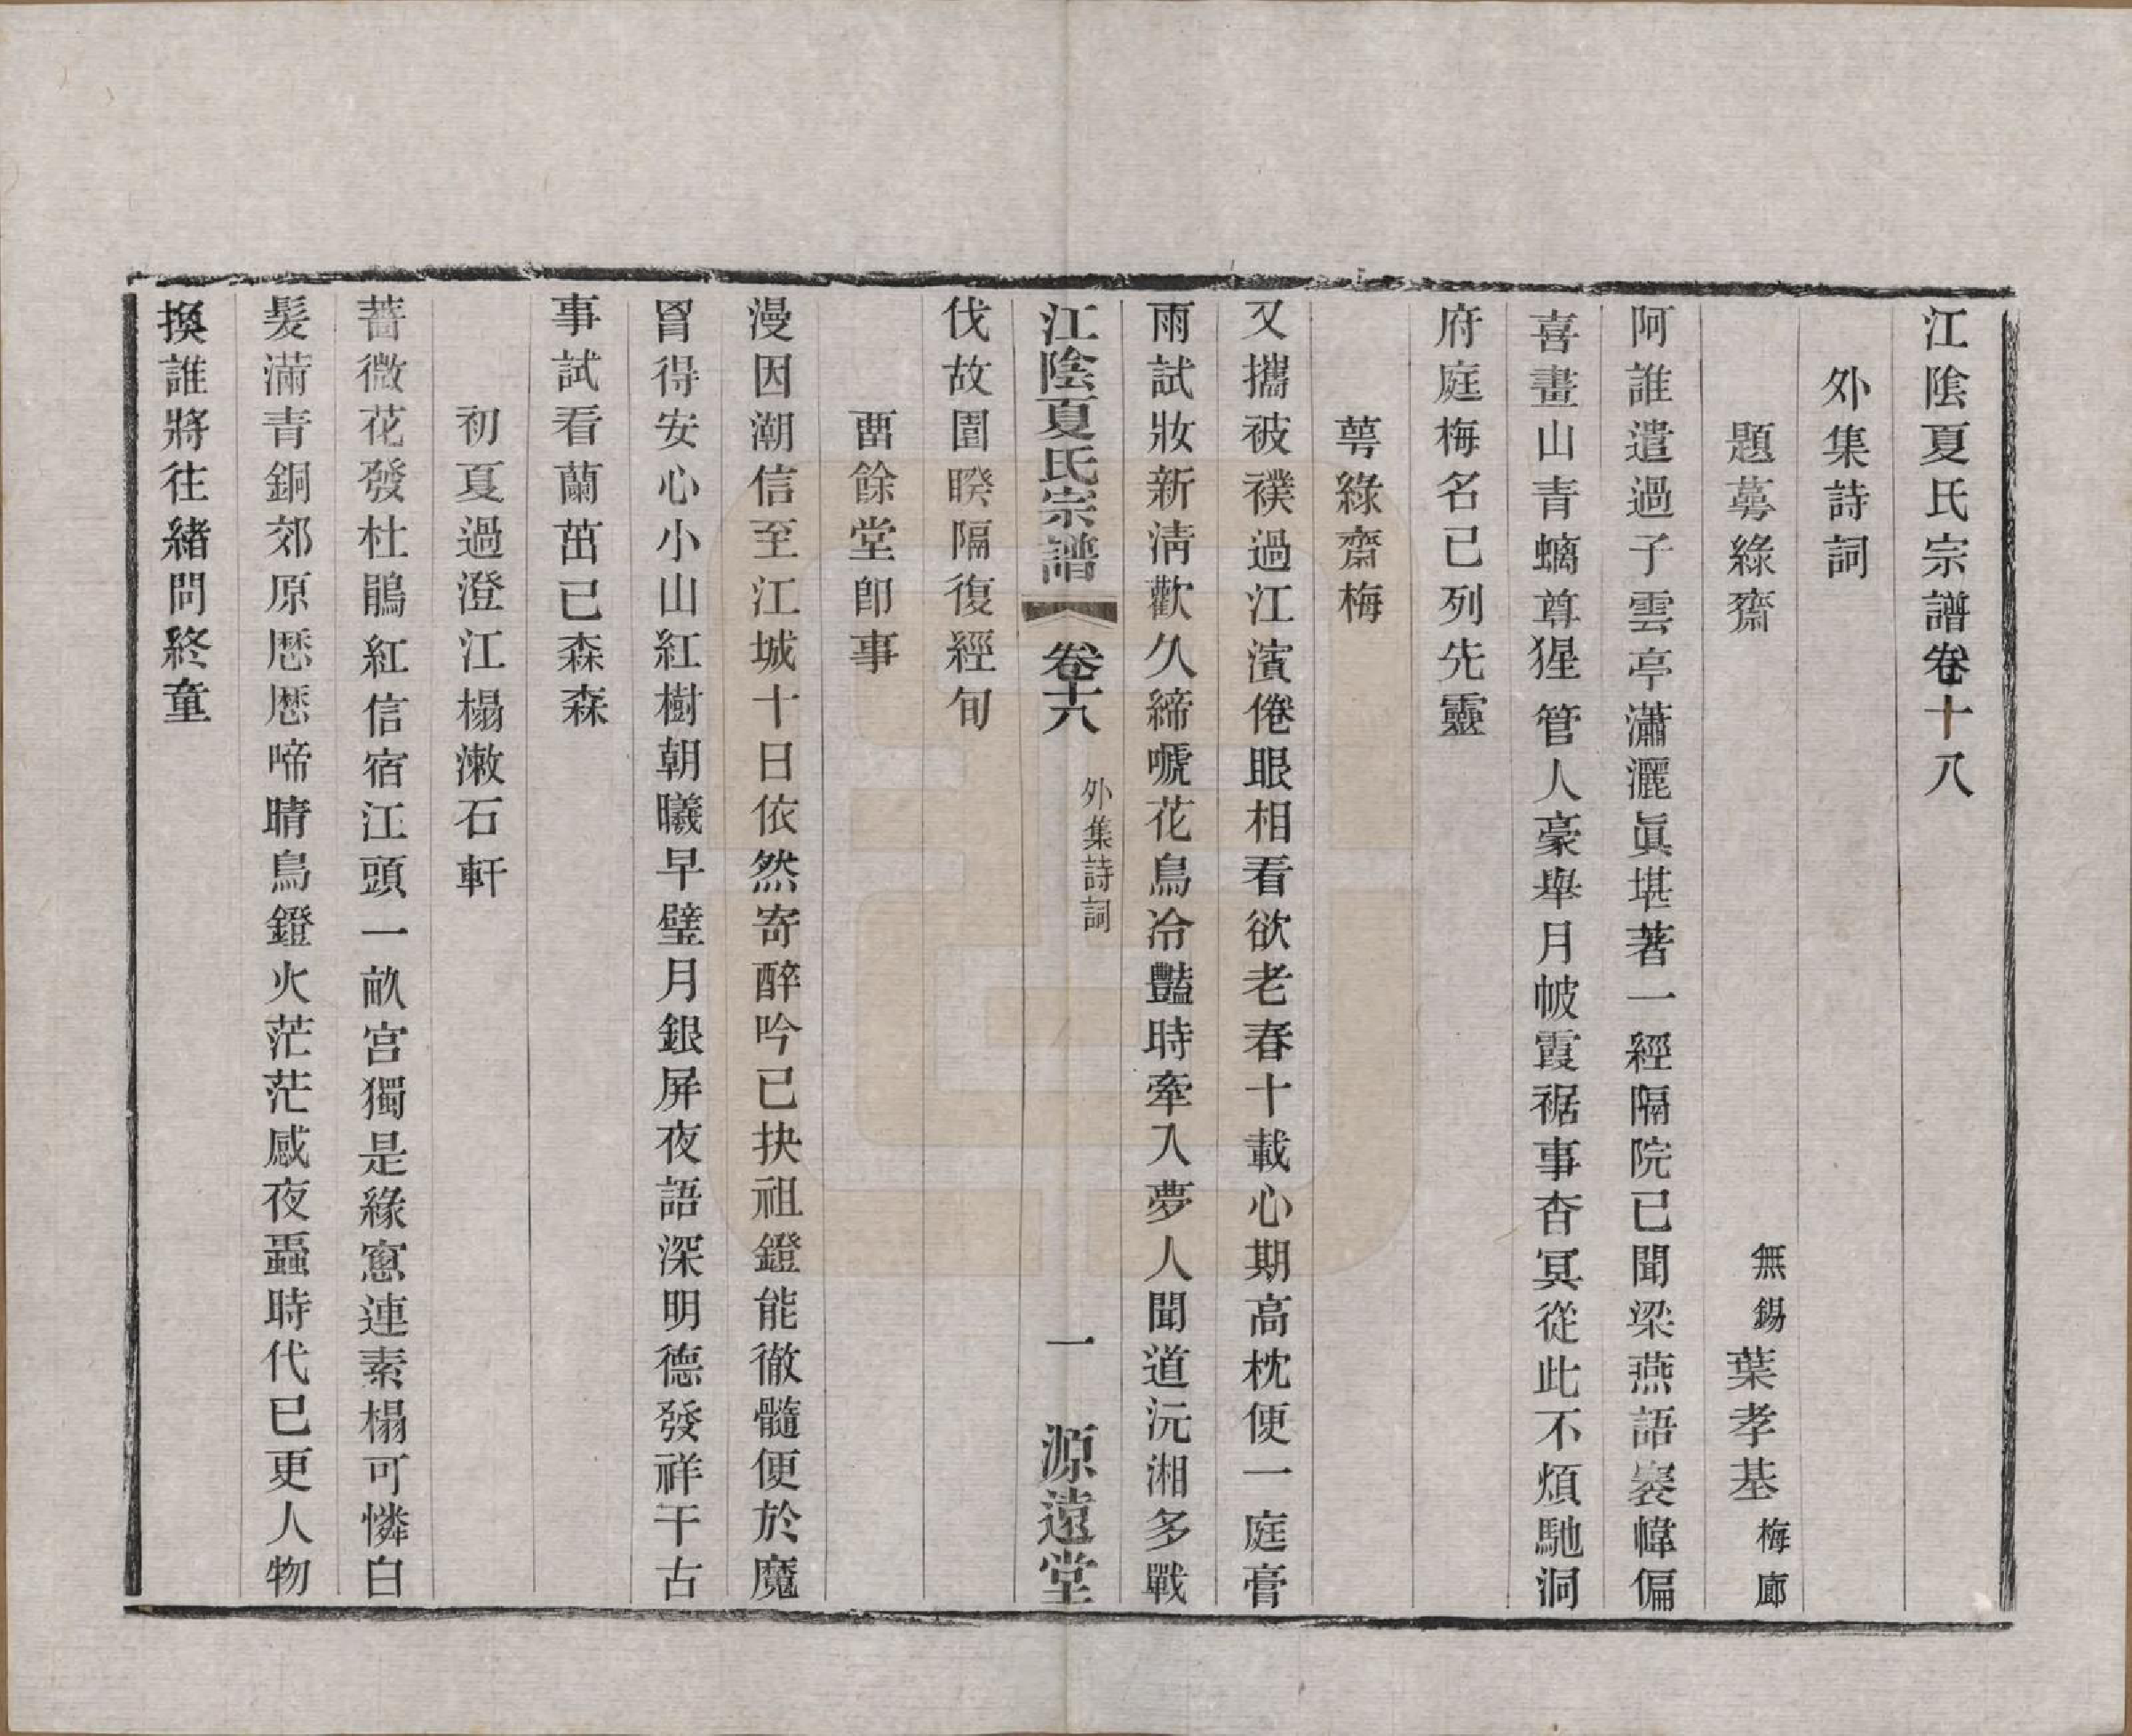 江陰夏氏宗譜卷十八
外集詩詞
題萼綠齋　無錫葉孝基梅廊
阿誰遣過子雲亭瀟灑眞堪著一經隔院已聞梁燕語褰幃偏
喜畫山青螭尊猩管人豪舉月帔霞裾事杳冥從此不煩馳洞
府庭梅名已列先靈
萼綠齋梅
又攜被襆過江濱倦眼相看欲老春十載心期高枕便一庭膏
雨試妝新清歡久締嗁花鳥冷豔時牽入夢人聞道沅湘多戰
江陰夏氏宗譜　卷十八　外集詩詞　一　源遠堂
伐故園暌隔復經旬
畱餘堂卽事
漫因潮信至江城十日依然寄醉吟已抉祖鐙能徹髓便於魔
罥得安心小山紅樹朝曦早璧月銀屏夜語深明德發祥千古
事試看蘭茁已森森
初夏過澄江榻漱石軒
薔薇花發杜鵑紅信宿江頭一畝宮獨是綠窻連素榻可憐白
髮滿青銅郊原厯厯啼晴鳥鐙火茫茫感夜蟲時代已更人物
換誰將往緒問終童